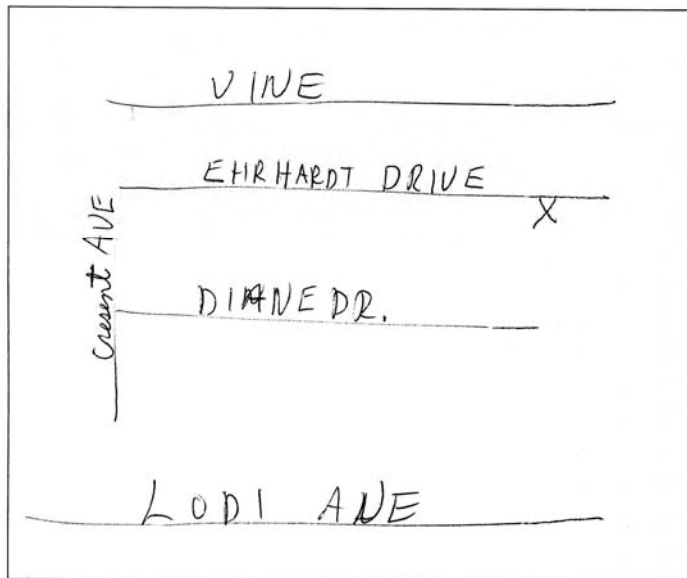 VINE
EHRHARDT DRIVE
X
Cresent AVE
DIANE DR.
LODI AVE